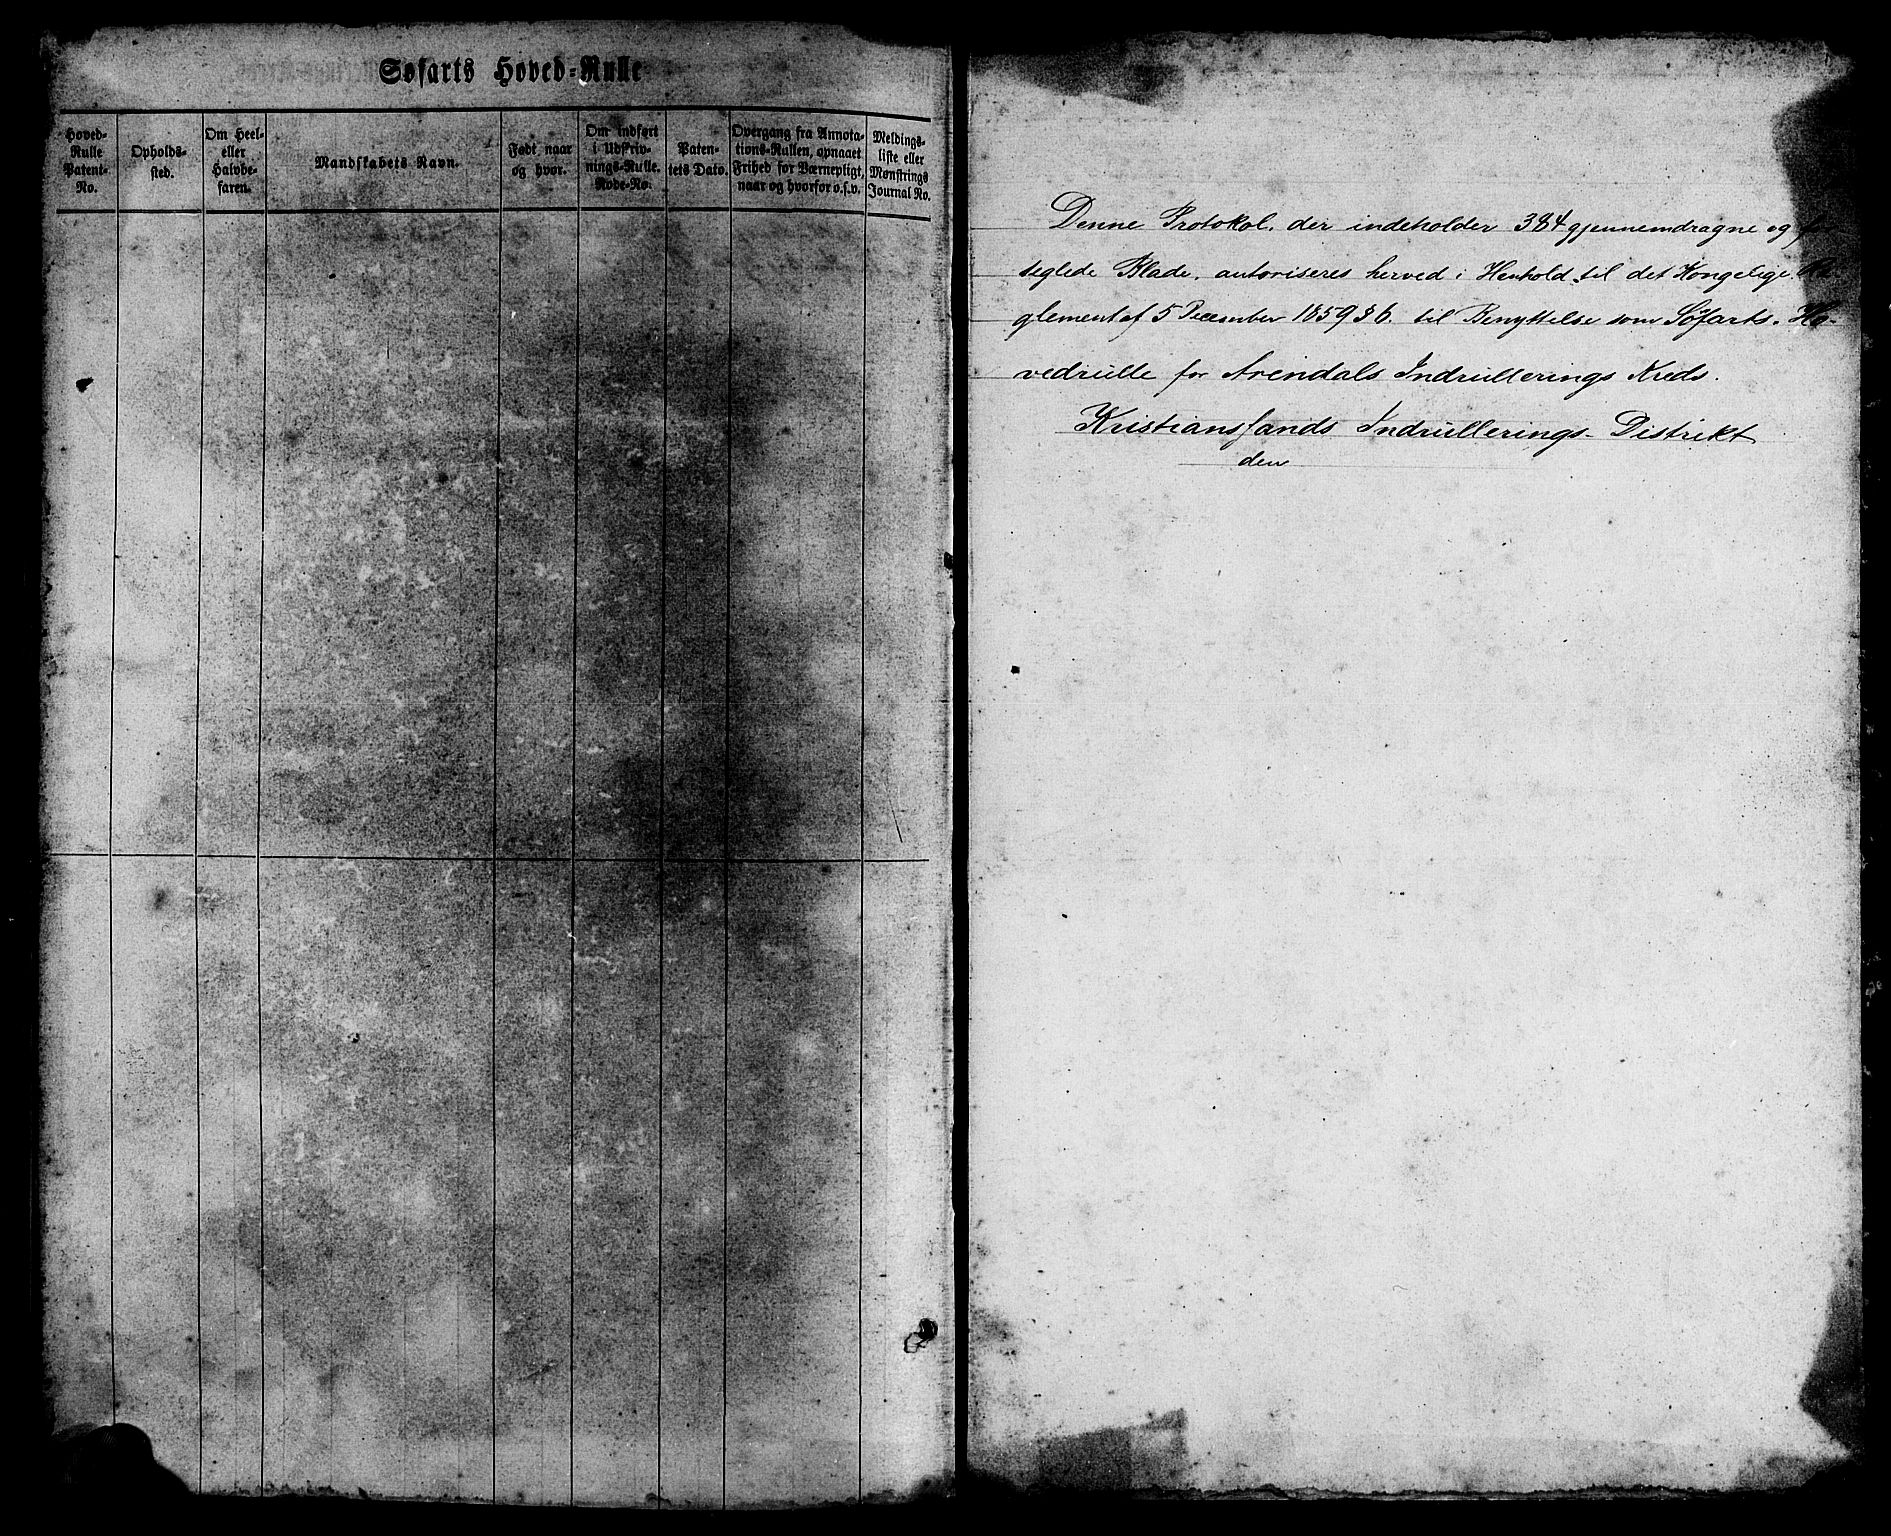 Søfarts Hoved-Rulle
Hoved-
Rulle
Patent-
No.
Opholds-
sted.
Om Heel-
eller
Halvbe-
faren.
Mandskabets Navn.
Født naar
og hvor.
Om indført
i Udskriv-
nings-Rulle.
Rode-No.
Paten-
tets Dato.
Overgang fra Annota-
tions-Rullen, opnaaet
Frihed for Værnepligt,
naar og hvorfor o.s.v.
Meldings-
liste eller
Mønstrings
Journal No.
Denne Protokol, der indeholder 384 gjennemdragne og for-
seglede Blade, autoriseres herved i Henhold til det Kongelige Re-
glement af 5 December 1859 § 6. til Benyttelse som Søfarts-Ho-
vedrulle for Arendals Indrullerings Kreds.
Kristianssands Indrullerings-Distrikt
den